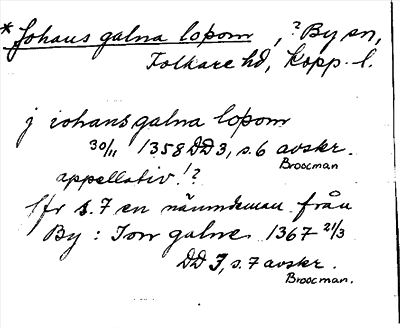 *Johans galna lopom, ? By sn,
Folkare hd, Kopp. l.
j iohans galna lopom
30/11 1358 DD 3, s. 6 avskr.
Broocman
appellativ!?
Jfr s. 7 en nämndeman från
By: Jon galne 1367 21/3
DD 3, s. 7 avskr.
Broocman.